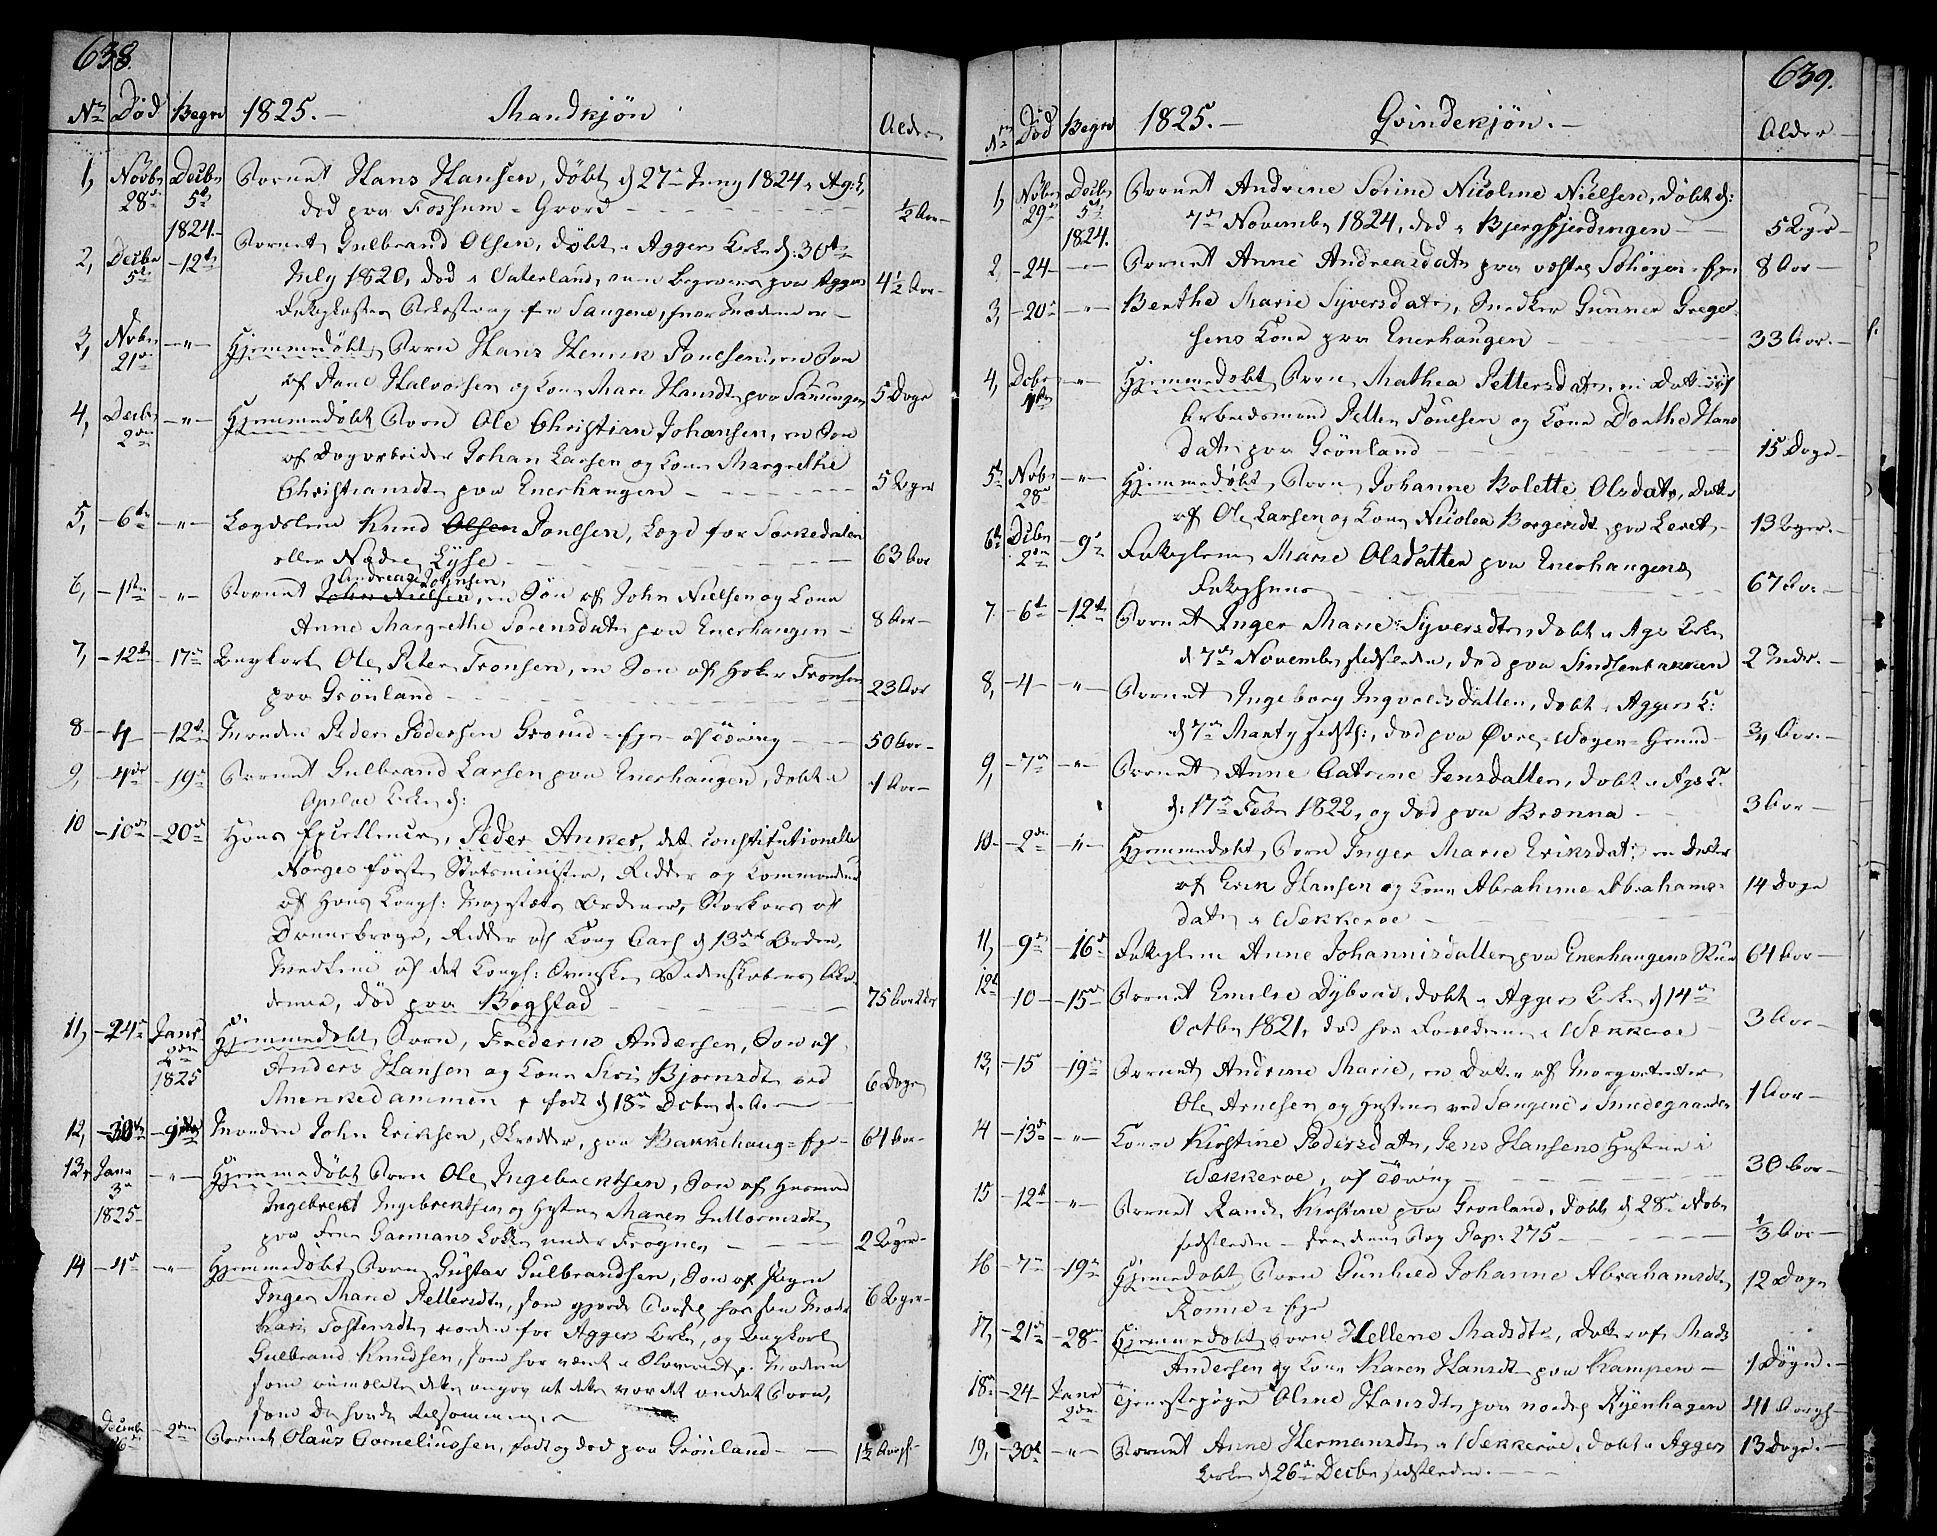 638.
No Død Begr 1825.— Mandkjøn Alder
1, Novbr 28de Decbr 5te 1824.— Barnet Hans Hansen, døbt d 27de Juny 1824
død paa Fossum = Gaard — ½ Aar—
2, Decbr 5te —12te Barnet Gulbrand Olsen, døbt i Aggers Kirke d: 30te
July 1820, død i Vaterland, paa Aggers 4½ Aar—
3, Novbr 21de —"— Hjemmedøbt Barn Hans Henrik Poulsen, en Søn
af Halvorsen og Kone Mari Hansdtr paa 5 Dage
4, Decbr 2den —"— Hjemmedøbt Barn Ole Christian Johansen, en Søn
af Dagarbeider Johan Larsen og Kone Margrethe
Christiansdtr paa Enerhaugen — 5 Uger
5, —6te —"— Lægdslem Knud Olsen Poulsen, Lægd for Sørkedalen
eller Nedre Lysse — 63 Aar
6, —1ste —"— Barnet Andreas Johnsen John Nielsen, en Søn af John Nielsen og Kone
Anne Margrethe Sørensdatr paa Enerhaugen — 8 Aar—
7, —12te —17de Ungkarl Ole Peter Tronsen, en Søn af Tronsen
paa Grönland — 23 Aar
8— —4— —12te Manden Peder Pedersen Grønd = Eje af Tæring — 50 Aar—
9, —4de —19de Barnet Gulbrand Larsen paa Enerhaugen, døbt i
Opsloe Kirke d: 1 Aar—
10 —10de —20de Hans Excellence, Peder Anker, det constitutionelle
Norges første Statsminister, Ridder og Commandeur
af Hans Kongl: Majestæts Ordener, Storkors af
Dannebroge, Ridder af Kong Carl d 13des Orden,
Medlem af det Kongl: Svenske Videnskabers Aca-
demie, død paa Bogstad — 75 Aar
11, —24de Janr 2den 1825 Hjemmedøbt Barn, Frederik Andersen, Søn af
Anders Hansen og Kone Siri Bjørnsdtr ved
Munkedammen, født d 18de Decbr d. A. — 6 Dage
12, —30te —9de Manden John Eriksen, Skredder, paa Bakkehaug = Eje— 64 Aar—
13, Janr 3de 1825— —"— Hjemmedøbt Barn Ole Ingebrektsen, Søn af Husmand
Ingebrekt Ingebrektsen og Hustru Maren Guttormsdtr
paa Garmans Løkke under Frogner — 2 Uger—
14 —4de —"— Hjemmedøbt Barn Gustav Gulbrandsen, Søn af Pigen
Inger Marie Pettersdtr, som gjorde Barsel hos sin Moder
Kari Tostensdtr neden for Aggers Kirke, og Ungkarl 6 Uger—
Gulbrand Knudsen, som har været i Moderen
som anmeldte dette angav at dette var det andet Barn,
som de havde tilsammen
Decembr 26de —2den Barnet Olaus Corneliussen, født og død paa Grönland — 1½ Aar
639.
No Død Begr 1825.— Qvindekjøn.— Alder—
1, Nobr 29de Decbr 5te 1824. Barnet Andrine Sørine Nicoline Nielsen, døbt d:
7de Novembr 1824, død i Bjergfjerdingen — 5 Uger—
2, —24— —"— Barnet Anne Andreasdatr paa vestre Eje 8 Aar—
3, —20de —"— Berthe Marie Syversdatr, Snedker Gunner Greger-
sens Kone paa Enerhaugen — 33 Aar.—
4, Decbr 1ste —"— Hjemmedøbt Barn Mathea Pettersdatr, en Datter af
Arbeidsmand Petter Poulsen og Kone Dorthe Hans
datr paa Grönland — 15 Dage—
5te Nobr 28de —"— Hjemmedøbt Barn Johanne Bolette Olsdatr, Datter
af Ole Larsen og Kone Nicolea Borgersdtr paa Leret— 13 Uger.—
6te Decbr 2den —9de Fattiglem Marie Olsdatter paa Enerhaugens
Fattighuus — 67 Aar—
7 —6te —12te Barnet Inger Marie Syversdtr, døbt i Ags Kirke
d 7de Novembr sidstleden, død paa 2 Mdr.—
8, —4— —"— Barnet Ingeborg Ingvoldsdatter, døbt i Aggers K:
d 7de Marty sidstl:, død paa Øvre Wøyen = Grund ¾ Aar.—
9, —7de —"— Barnet Anne Catrine Jensdatter, døbt i Ags K.
d: 17de Febr 1822, og død paa Brænna — 3 Aar—
10— —2den —"— Hjemmedøbt Barn Inger Marie Eriksdatr en Datter
af Erik Hansen og Kone Abrahime Abrahams-
datr i Wækkerøe — 14 Dage
11, —9de —16de Fattiglem Anne Johannisdatter paa Enerhaugens 64 Aar—
12te —10— —15de Barnet Emilie Dybvad, døbt i Aggers Kirke d 14de
Octbr 1821, død hos Forældrene i Wækkerøe 3 Aar—
13, —15 —19de Barnet Andrine Marie, en Datter af
Ole Arnesen og Hustrue ved Sangene i Smedegaarden 1 Aar—
14 —13de —"— Konen Kirstine Pedersdatr, Jens Hansens Hustrue i
Wækkerøe, af Tæring — 30 Aar—
15 —12te —"— Barnet Randi Kirstine paa Grønland, døbt d 28de Nobr
sidstleden — denne Bog Pag: 275 — ⅓ Aar—
16 —7de —19de Hjemmedøbt Barn Gunhild Johanne Abrahamsdtr
Rønne = Eje 12 Dage
17, —21de —28de Hjemmedøbt Barn Hellene Madsdtr, Datter af Mads
Andersen og Kone Karen Hansdtr paa Kampen — 1 Døgn.—
18de —24— Janr 2den Tjenestepige Oline Hansdtr paa nordre Ryenhagen 41 Aar
19, —30te —"— Barnet Anne Hermansdtr i Wækkerøe, døbt i Aggers
Kirke d 26de Decbr sidstleden.— 13 Dage.—